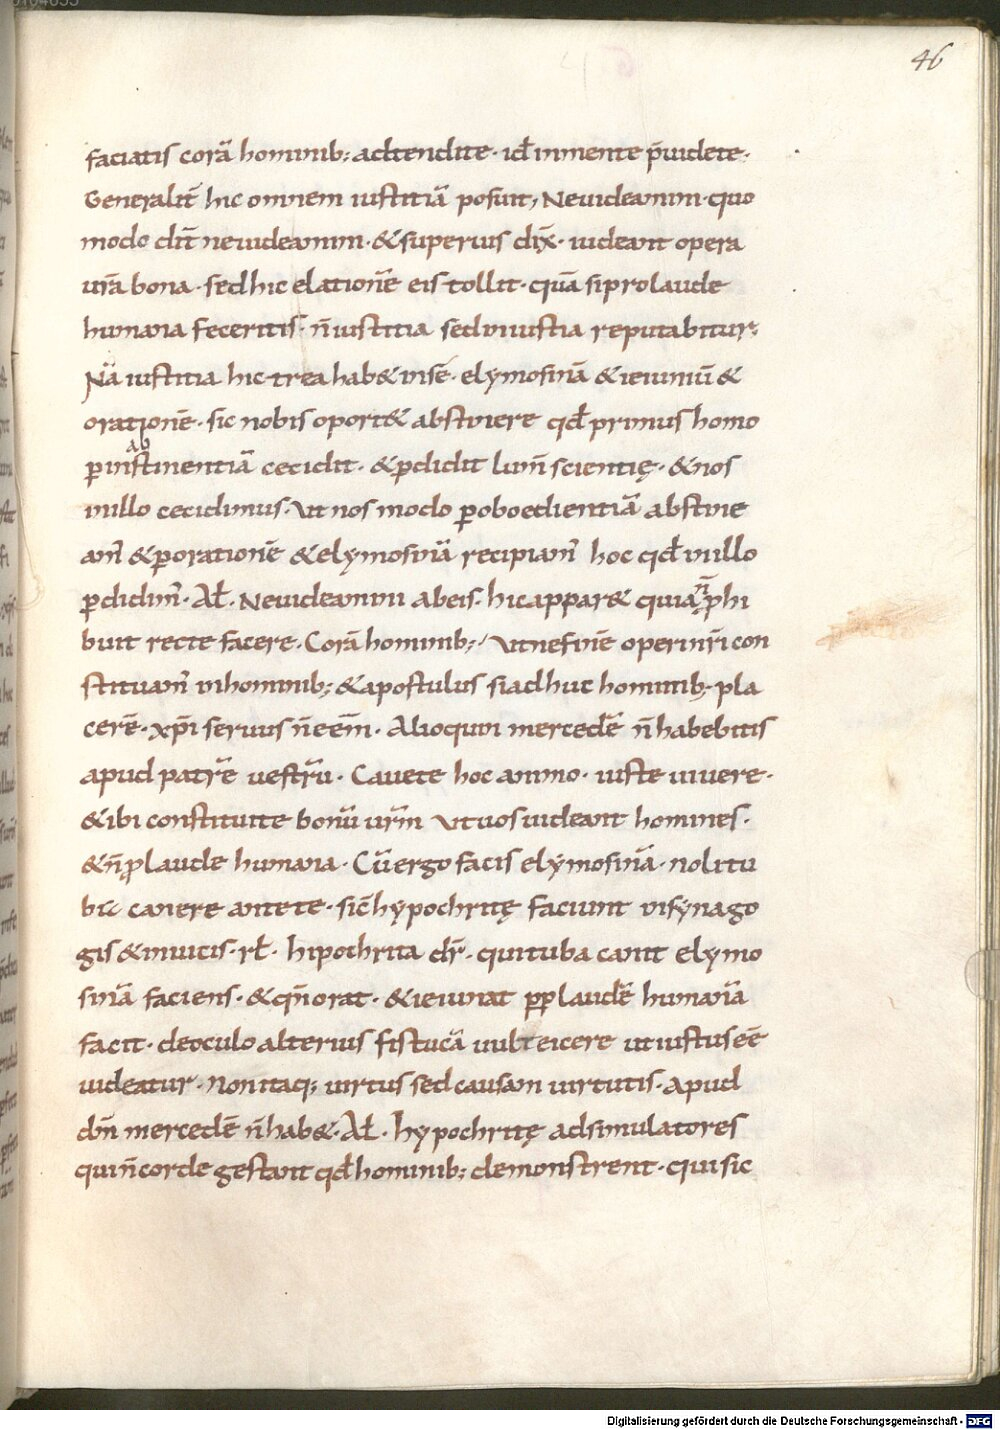 46
faciatis corā hominib; adtendite · id÷ inmente p̄uidete ·
Generalit̄ hic omnem iustitiā posuit, Neuideamini · quo
modo dic̄t neuideamini · &superius dix̄ · uideant opera
ur̄a bona · sed hic elationē eis tollit · quā si prolaude
humana feceritis · n̄ iustitia sed iniustia reputabitur ·
Nā iustitia hic trea hab& insē · elymosinā & ieiuniū &
orationē · sic nobis oport& abstinere qđ primus homo
ꝑ inabstinentiā cecidit · &ꝑdidit lum̄ scientię · &nos
inillo cecidimus · Ut nos modo ꝑ oboedientiā abstine
am̄ &ꝑ orationē &elymosinā recipiam̄ hoc qđ inillo
ꝑdidim̄ · Ał · Neuideamini abeis · hic appar& quia n̄ ꝓhi
buit recte facere · Corā hominib; · / Ut nefinē operi nr̄i con
stituam̄ inhominib; &apostulus si adhuc hominib; pla
cerē · xp̄i seruus n̄ eēm · Alioquin mercedē n̄ habebitis
apud patrē uestrū · Cauete hoc animo · iuste uiuere ·
&ibi constituite bonū ur̄m Ut uos uideant homines ·
&n̄ ꝓ laude humana · Cū ergo facis elymosinā · noli tu
bic canere ante te · sic̄ hypochritę faciunt insynago
gis &inuicis · rł · hipochrita dr̄ · qui tuba canit elymo
sinā faciens · &qn̄ orat · &ieiunat ꝓp laudē humanā
facit · de oculo alterius fistucā uult eicere ut iustus eē
uideatur · Non itaq; uirtus sed causam uirtutis · apud
dn̄m mercedē n̄ hab& · Ał · hypochritę adsimulatores
qui n̄ corde gestant qđ hominib; demonstrent · qui sic
Digitalisierung gefördert durch die Deutsche Forschungsgemeinschaft - DFG